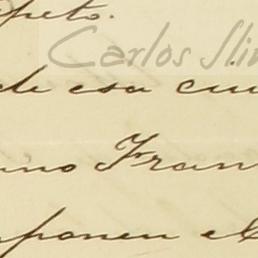 speto.
Carlos Slim
de esa ciu
uno Fran
mponen el